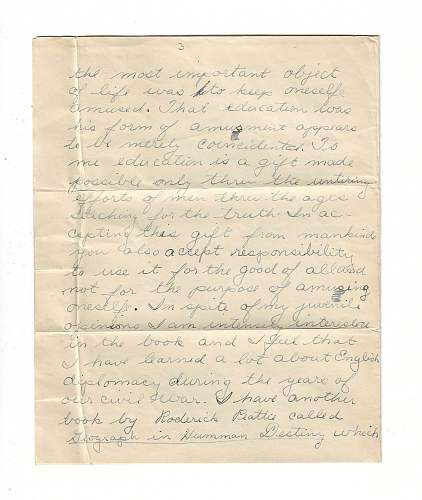 3
the most important object
of life was to keep oneself
amused. That education was
his form of amusment appears
to be merely coincidental. To
me education is a gift made
possible only thru the untiring
efforts of men thru the ages
searching for the truth. In ac-
cepting this gift from mankind
you also accept responsibility
to use it for the good of all and
not for the purpose of amusing
oneself. In spite of my juvenile
opinions I am intensely interested
in the book and I feel that
I have learned a lot about English
diplomacy during the years of
our civil war. I have another
book by Roderick Peattie called
Geograph in Humman Destiny which